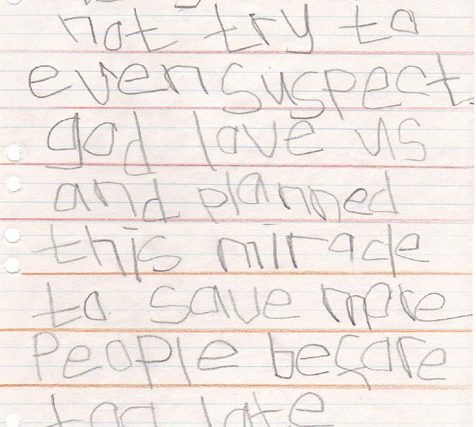 not try to
even suspect
god love us
and planned
this miracle
to save more
people before
too late